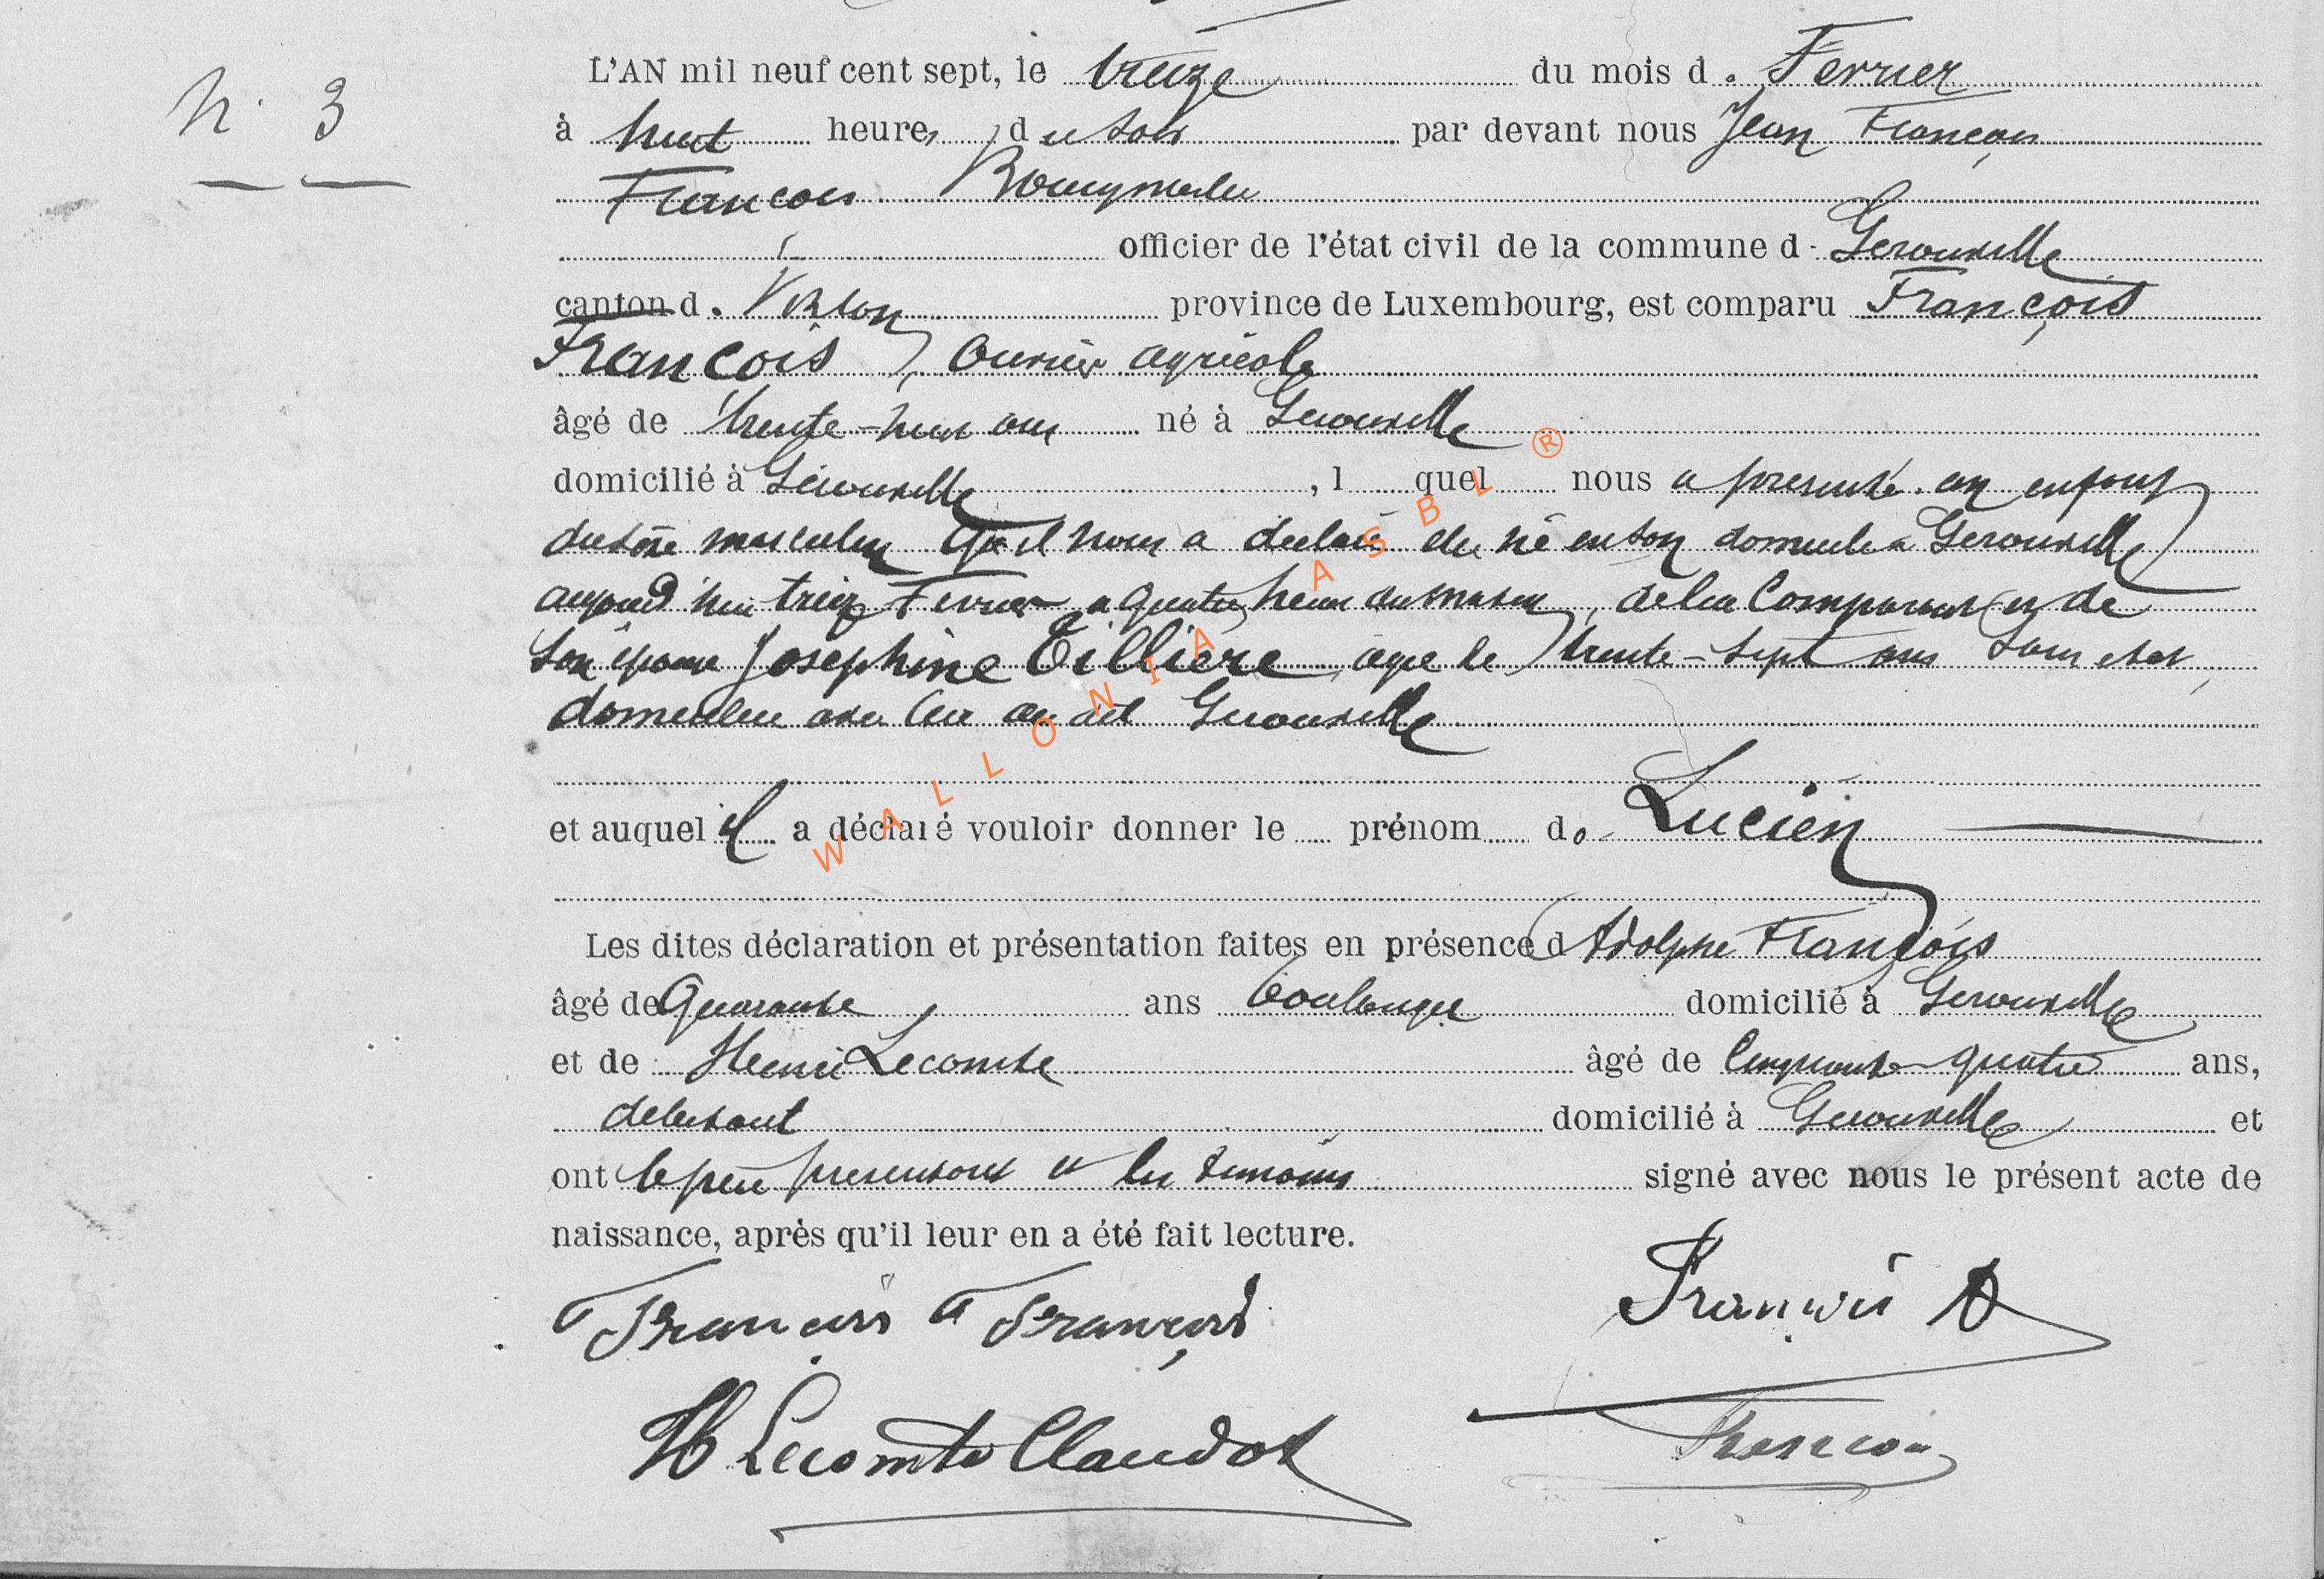 N. 3
L'AN mil neuf cent sept, le treize du mois d. Fevrier
à huit heures, du soir par devant nous Jean François
François
officier de l'état civil de la commune d. Gerouville
canton d. Virton province de Luxembourg, est comparu François
François, ouvrier agricole
âgé de trente-huit ans né à Gerouville
domicilié à Gérouville, l quel nous a présenté un enfant
du sexe masculin qu'il nous a déclaré être né en son domicile à Gerouville
aujourd'hui treize Fevrier, a quatre heures du matin, de lui Comparant et de
son épouse Joséphine Tillière, agée de trente-sept ans sans etat,
domiciliée avec lui au dit Gerouville
et auquel il a déclaré vouloir donner le prénom de Lucien
Les dites déclaration et présentation faites en présence d Adolphe François
âgé de Quarante ans boulanger domicilié à Gerouville
et de Henri Lecomte âgé de Cinquante-quatre ans,
debitant domicilié à Gerouville et
ont le père présentant et les témoins signé avec nous le présent acte de
naissance, après qu'il leur en a été fait lecture.
François François
François A
H Lecomte Claudot
François
WALLONIA ASBL ®